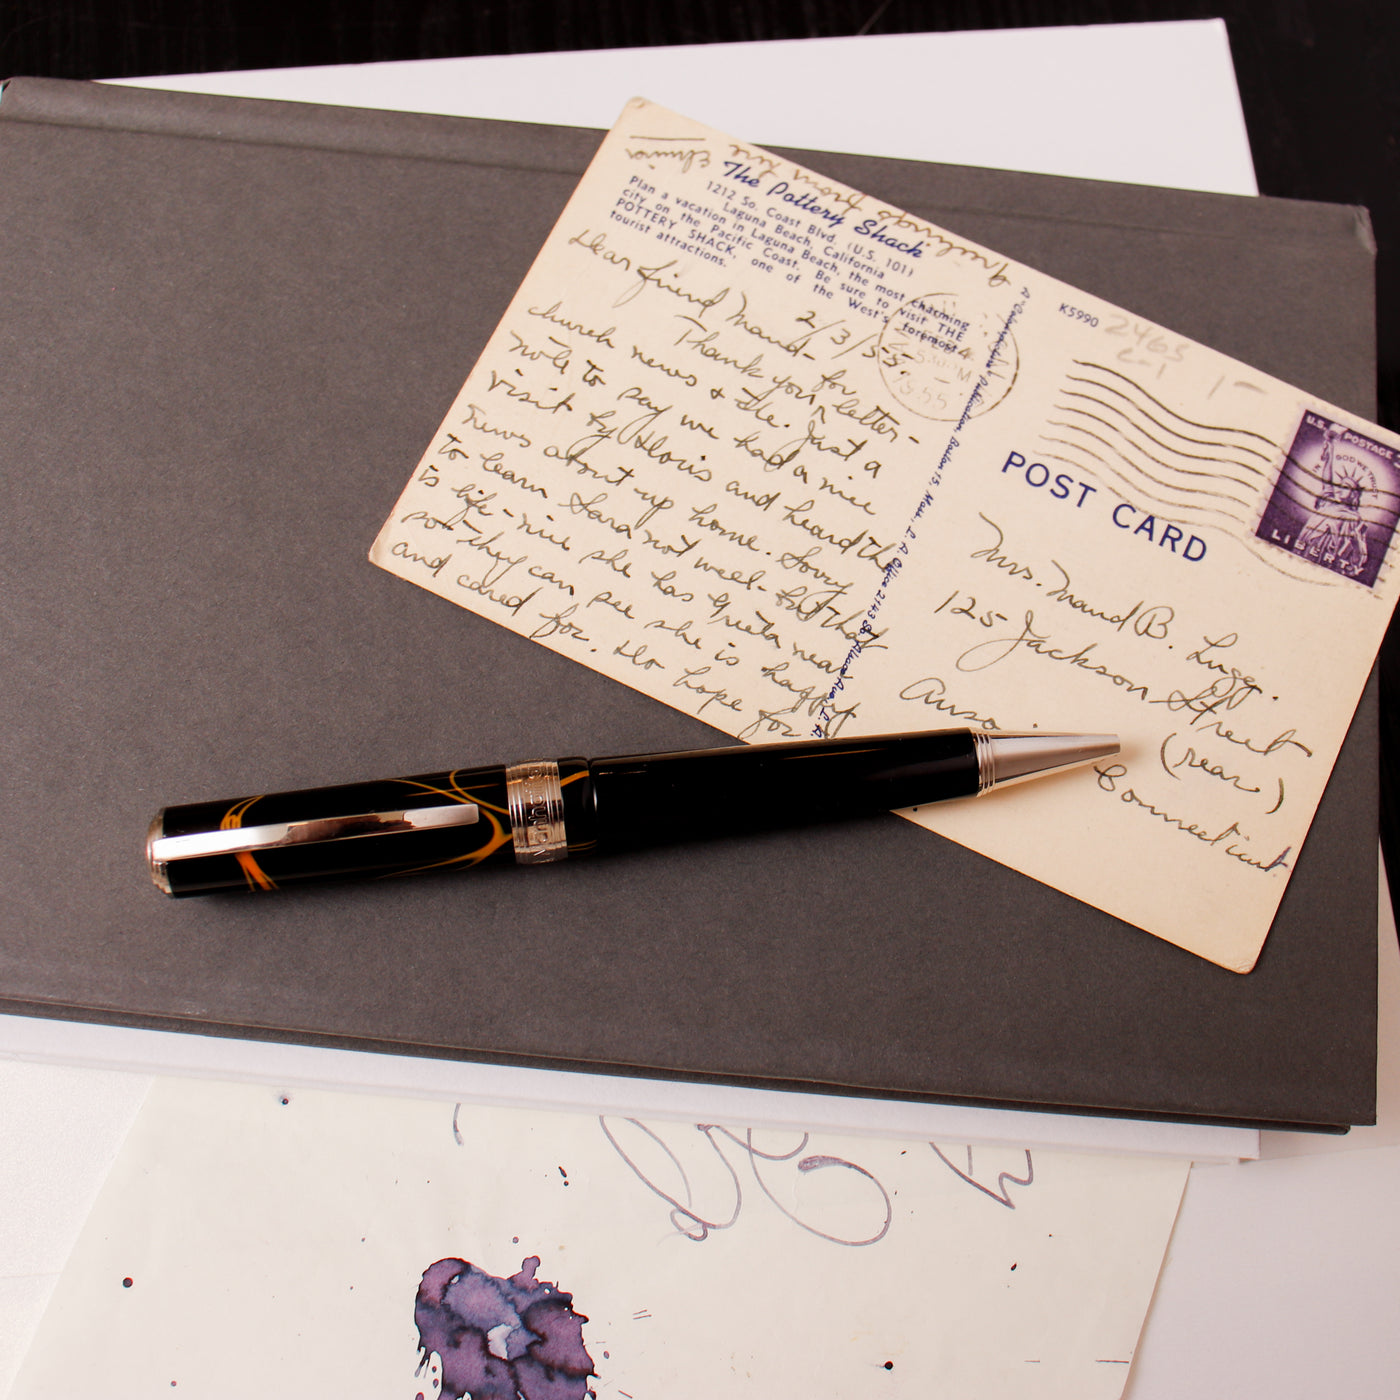 The Pottery Shack
1212 So. Coast Blvd. (U.S. 101)
Laguna Beach, California
Plan a vacation in Laguna Beach, the most charming
city on the Pacific Coast. Be sure to visit THE
POTTERY SHACK, one of the West's foremost
tourist attractions.
2/3/55
Dear friend Maud-
Thank you for letter-
church news & etc. Just a
note to say we had a nice
visit by Doris and heard the
news about up home. Sorry
to learn Sara not well- but that
is life- nice she has Greta near
so they can see she is happy
and cared for. Do hope for
Greetings from
K5990
2463
c-1
1-
1955
POST CARD
U.S. POSTAGE
IN GOD WE TRUST
LIBERTY
Mrs. Maud B. Lugg.
125 Jackson Street
(rear)
Connecticut